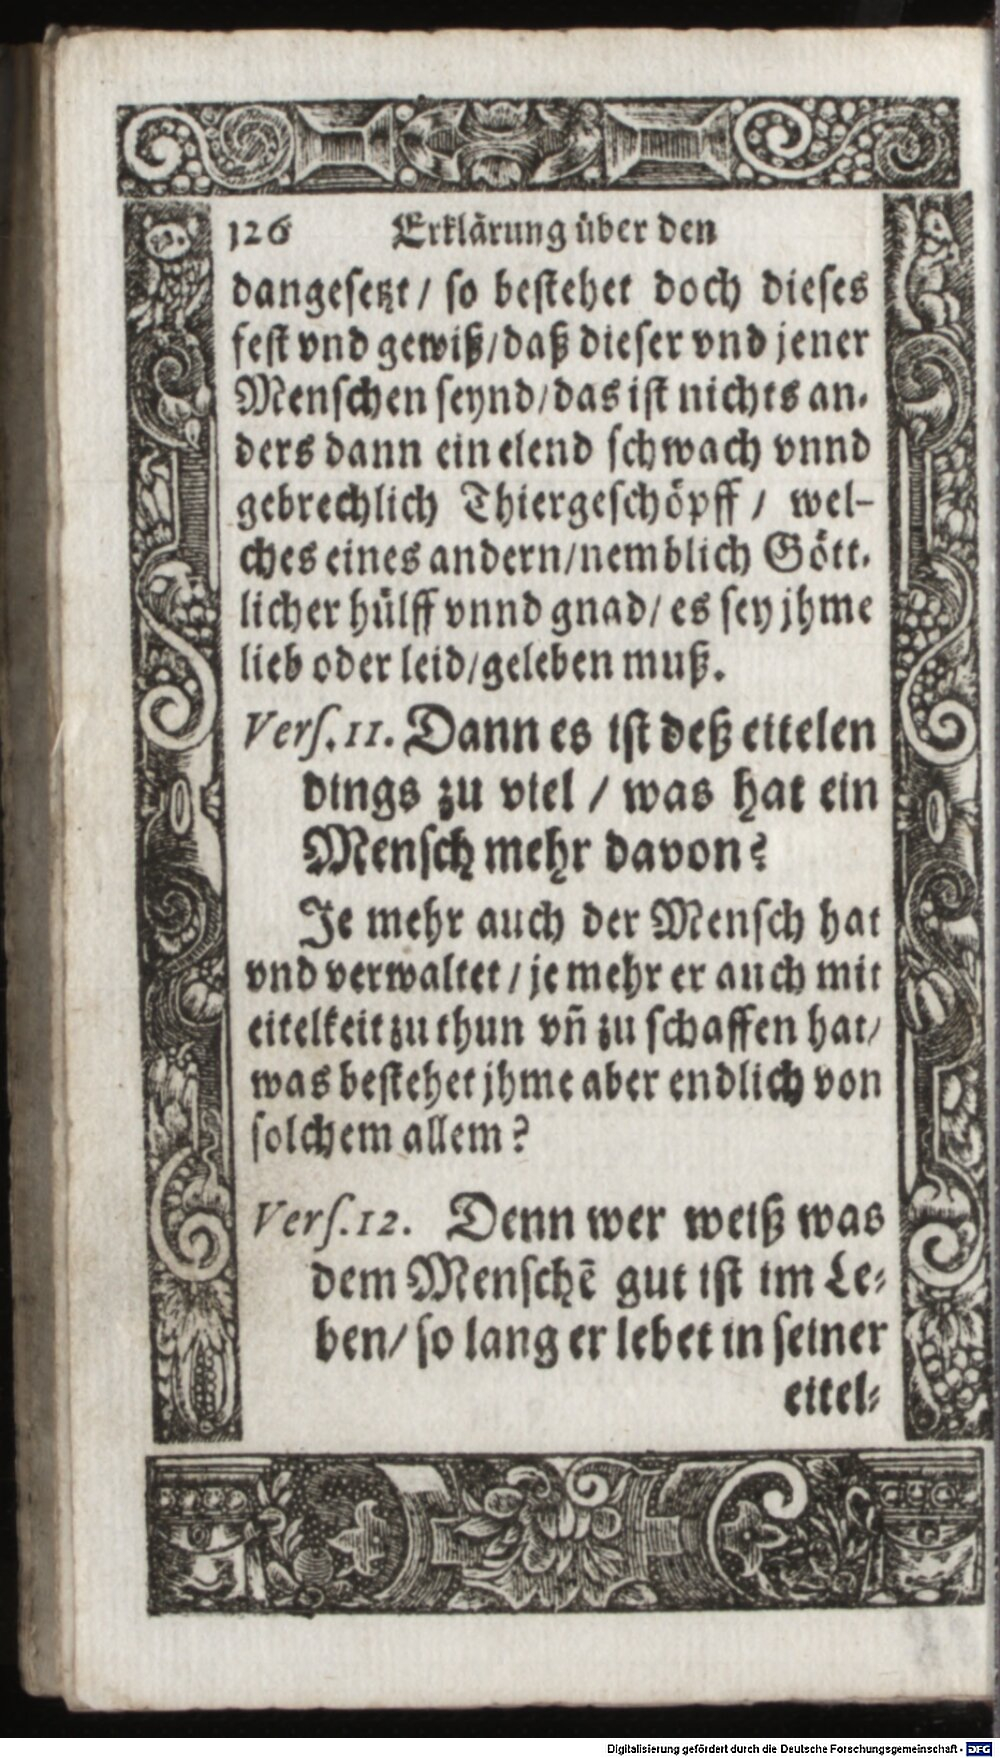 126 Erklärung über den
dangesetzt / so bestehet doch dieses
fest vnd gewiß / daß dieser vnd jener
Menschen seynd / das ist nichts an-
ders dann ein elend schwach vnnd
gebrechlich Thiergeschöpff / wel-
ches eines andern / nemblich Gött-
licher hülff vnnd gnad / es sey jhme
lieb oder leid / geleben muß.
Vers. 11. Dann es ist deß eitelen
dings zu viel / was hat ein
Mensch mehr davon?
Je mehr auch der Mensch hat
vnd verwaltet / je mehr er auch mit
eitelkeit zu thun vn̄ zu schaffen hat /
was bestehet jhme aber endlich von
solchem allem?
Vers. 12. Denn wer weiß was
dem Menschē gut ist im Le-
ben / so lang er lebet in seiner
eitel-
Digitalisierung gefördert durch die Deutsche Forschungsgemeinschaft - DFG